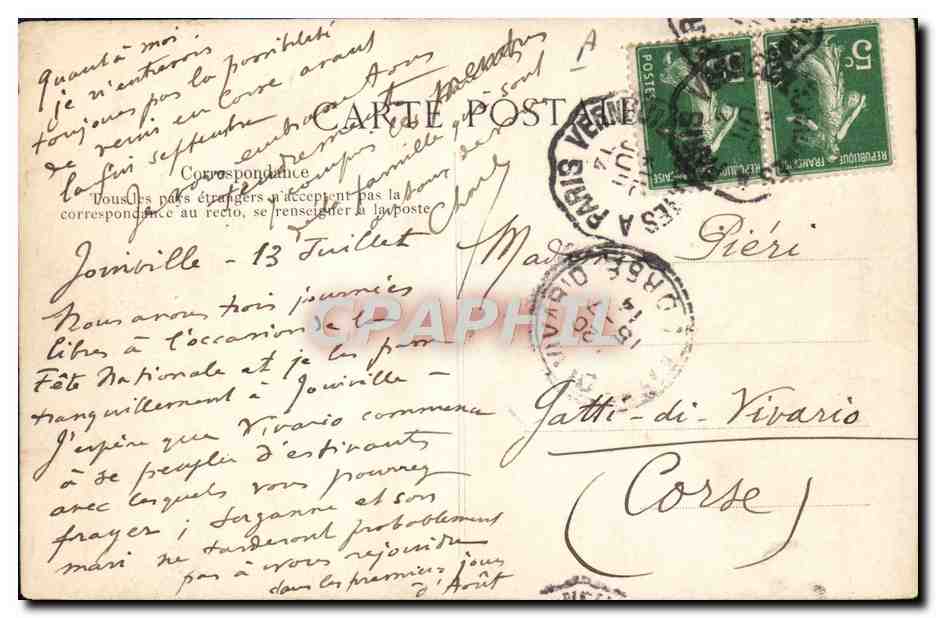 CARTE POSTALE
Correspondance
Tous les pays étrangers n'acceptent pas la
correspondance au recto, se renseigner à la poste
Joinville - 13 Juillet
Nous avons trois journées
libres à l'occasion de la
Fête Nationale et je les passe
tranquillement à Joinville -
J'espère que Vivario commence
à se peupler d'estivants
avec lesquels vous pourrez
frayer ; et son
mari ne tarderont probablement
pas à vous rejoindre
dans les premiers jours
d'Août
Quant à moi
je n'entrevois
toujours pas la possibilité
de venir en Corse avant
la fin septembre
Je vous embrasse tous
tendrement
la famille qui sont
autour de
Charles
A
Madame Piéri
Gatti-di-Vivario
(Corse)
POSTES
5c
REPUBLIQUE FRANÇAISE
5c
REPUBLIQUE FRANÇAISE
A PARIS
14
CORSE
VIVARIO
15
14
CPAPHIL